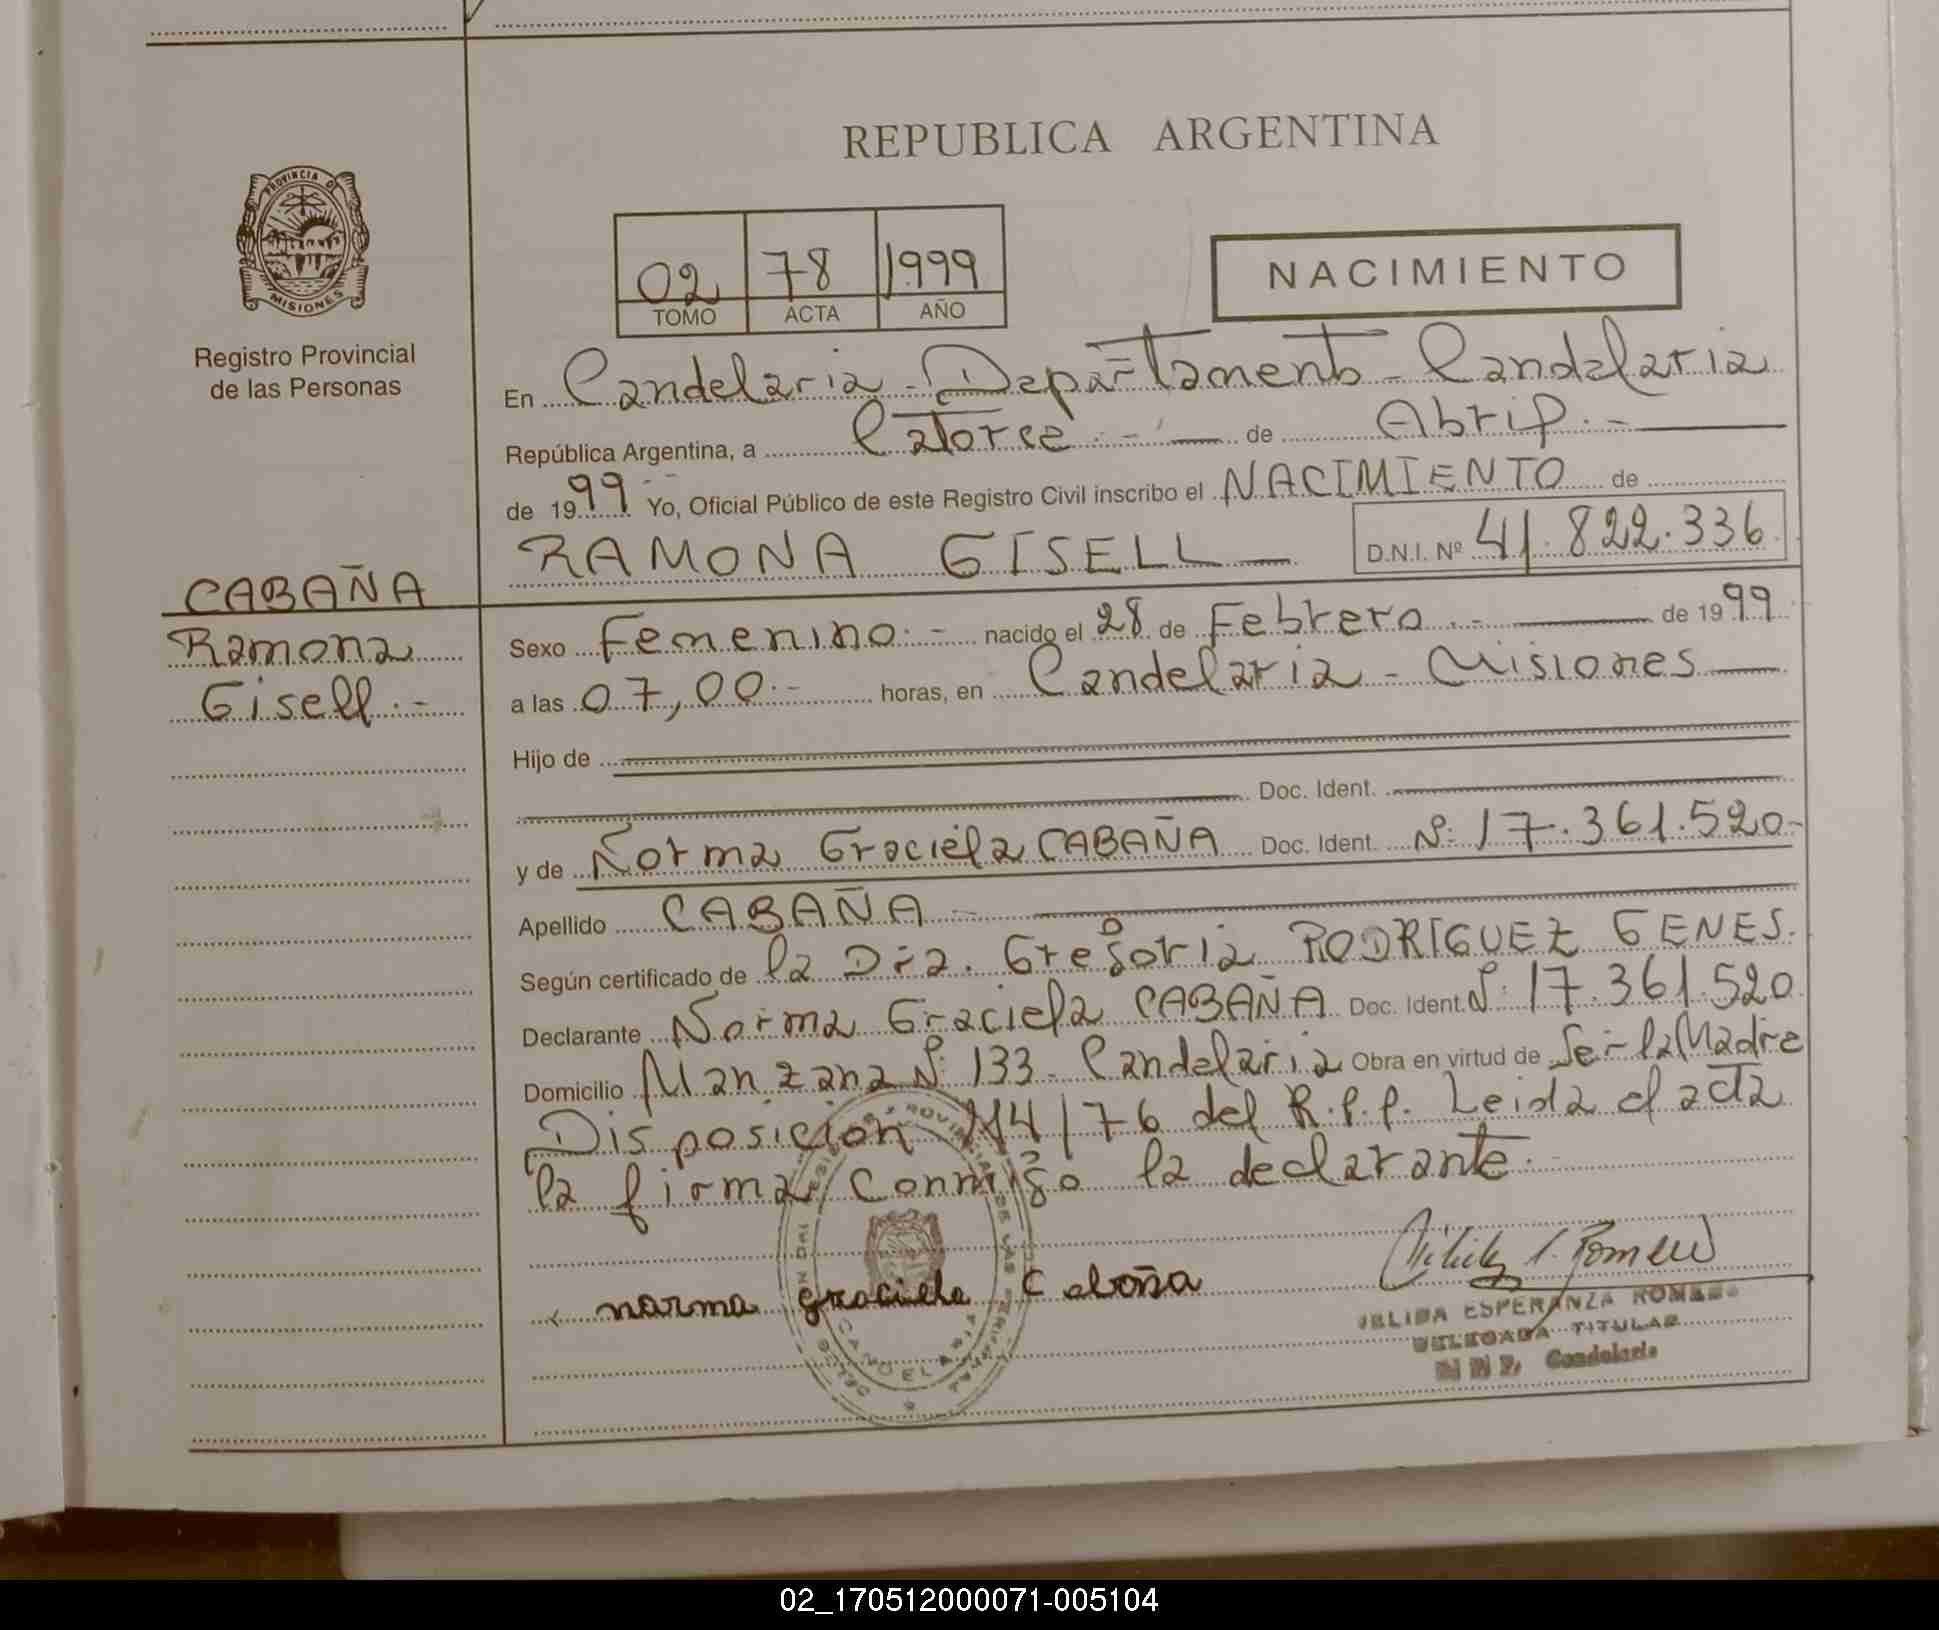 REPUBLICA ARGENTINA
PROVINCIA DE
MISIONES
Registro Provincial
de las Personas
02 78 1999
TOMO ACTA AÑO
NACIMIENTO
En Candelaria - Departamento - Candelaria
República Argentina, a Catorce.- de Abril.-
de 1999 Yo, Oficial Público de este Registro Civil inscribo el NACIMIENTO de
RAMONA GISELL D.N.I. Nº 41.822.336
CABAÑA
Ramona
Gisell.-
Sexo Femenino.- nacido el 28 de Febrero.- de 1999
a las 07,00.- horas, en Candelaria - Misiones
Hijo de
Doc. Ident.
y de Norma Graciela CABAÑA Doc. Ident. Nº: 17.361.520-
Apellido CABAÑA.-
Según certificado de la Dra. Gregoria RODRIGUEZ GENES.
Declarante Norma Graciela CABAÑA Doc. Ident. Nº: 17.361.520
Domicilio Manzana Nº: 133- Candelaria Obra en virtud de Ser la Madre
Disposición 114/76 del R.P.P. Leida el acta
la firma conmigo la declarante.
norma graciela Cabaña
CANDELARIA
ESPERANZA ROMERO
DELEGADA TITULAR
Candelaria
02_170512000071-005104